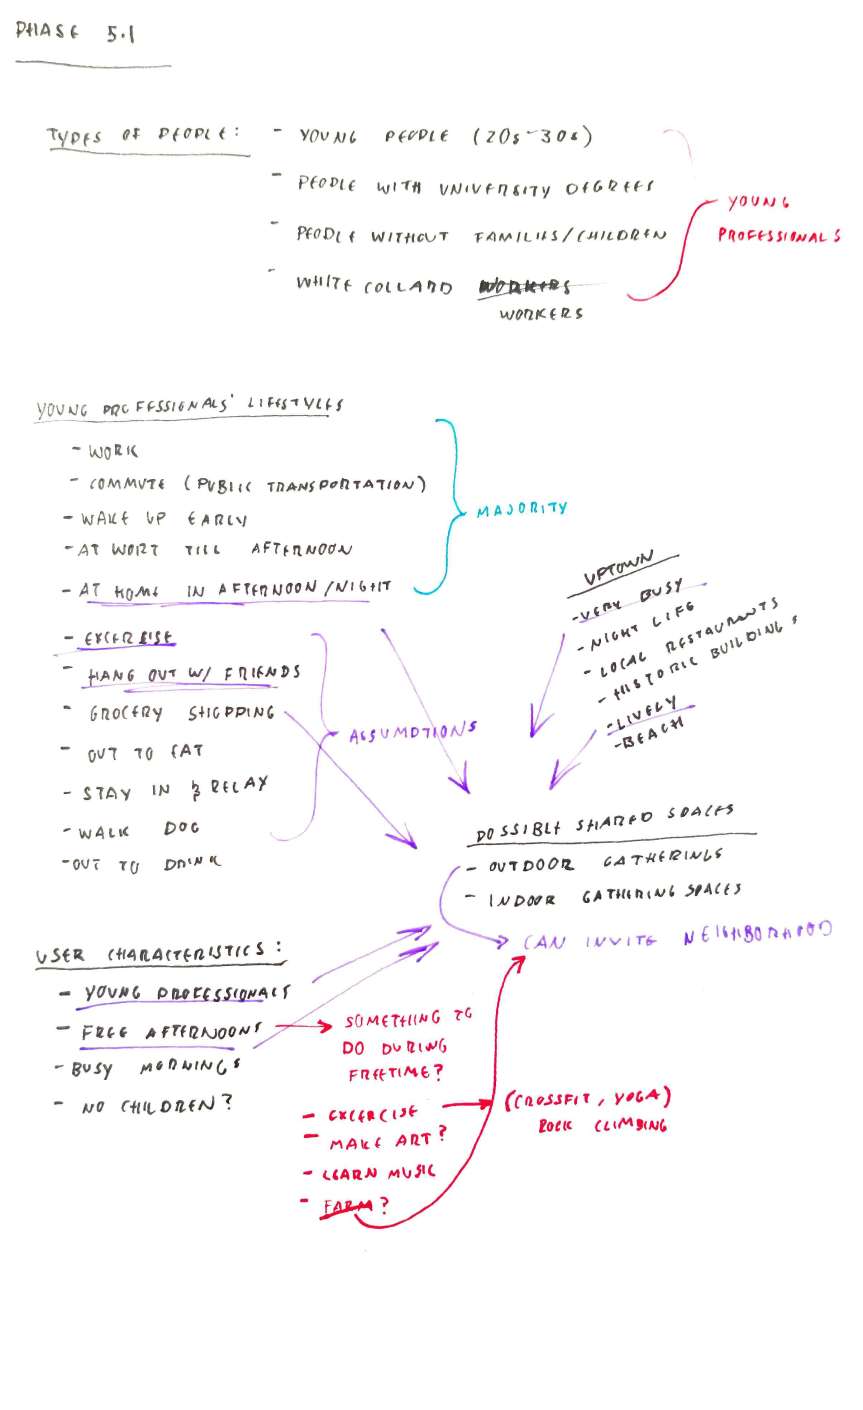 PHASE 5.1
TYPES OF PEOPLE:
- YOUNG PEOPLE (20s-30s)
- PEOPLE WITH UNIVERSITY DEGREES
- PEOPLE WITHOUT FAMILIES/CHILDREN
- WHITE COLLARD WORKERS
WORKERS
YOUNG
PROFESSIONALS
YOUNG PROFESSIONALS' LIFESTYLES
- WORK
- COMMUTE (PUBLIC TRANSPORTATION)
- WAKE UP EARLY
- AT WORT TILL AFTERNOON
- AT HOME IN AFTERNOON/NIGHT
MAJORITY
- EXCERSISE
- HANG OUT W/ FRIENDS
- GROCERY SHOPPING
- OUT TO EAT
- STAY IN & RELAX
- WALK DOG
- OUT TO DRINK
ASSUMPTIONS
UPTOWN
- VERY BUSY
- NIGHT LIFE
- LOCAL RESTAURANTS
- HISTORIC BUILDINGS
- LIVELY
- BEACH
POSSIBLE SHARED SPACES
- OUTDOOR GATHERINGS
- INDOOR GATHERING SPACES
CAN INVITE NEIGHBORHOOD
USER CHARACTERISTICS:
- YOUNG PROFESSIONALS
- FREE AFTERNOONS
- BUSY MORNINGS
- NO CHILDREN?
SOMETHING TO
DO DURING
FREETIME?
- EXCERCISE
- MAKE ART?
- LEARN MUSIC
- FARM?
(CROSSFIT, YOGA)
ROCK CLIMBING